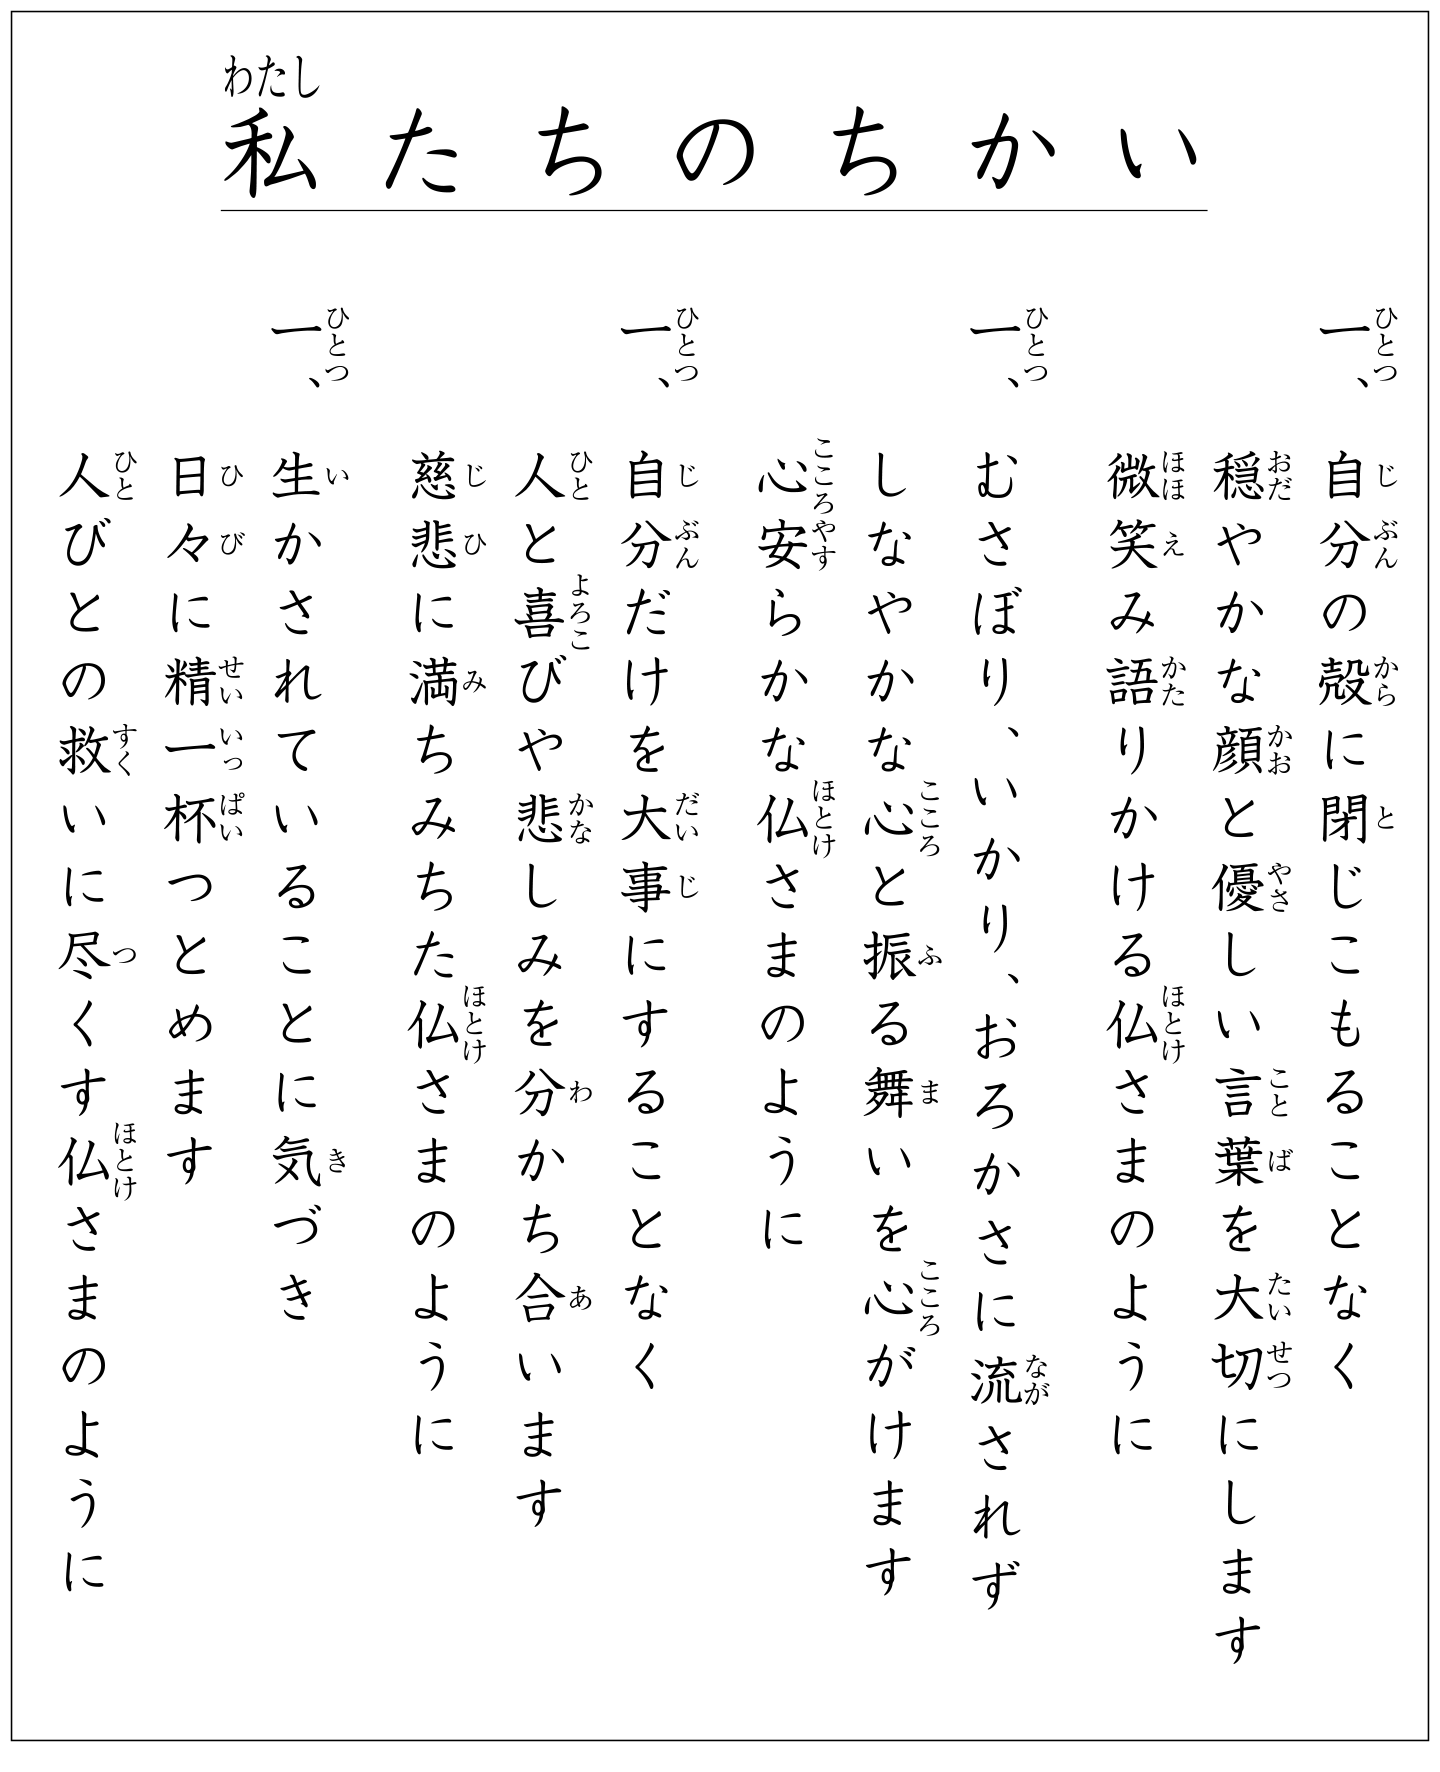 私たちのちかい
一、
自分の殻に閉じこもることなく
穏やかな顔と優しい言葉を大切にします
微笑み語りかける仏さまのように
一、
むさぼり、いかり、おろかさに流されず
しなやかな心と振る舞いを心がけます
心安らかな仏さまのように
一、
自分だけを大事にすることなく
人と喜びや悲しみを分かち合います
慈悲に満ちみちた仏さまのように
一、
生かされていることに気づき
日々に精一杯つとめます
人びとの救いに尽くす仏さまのように